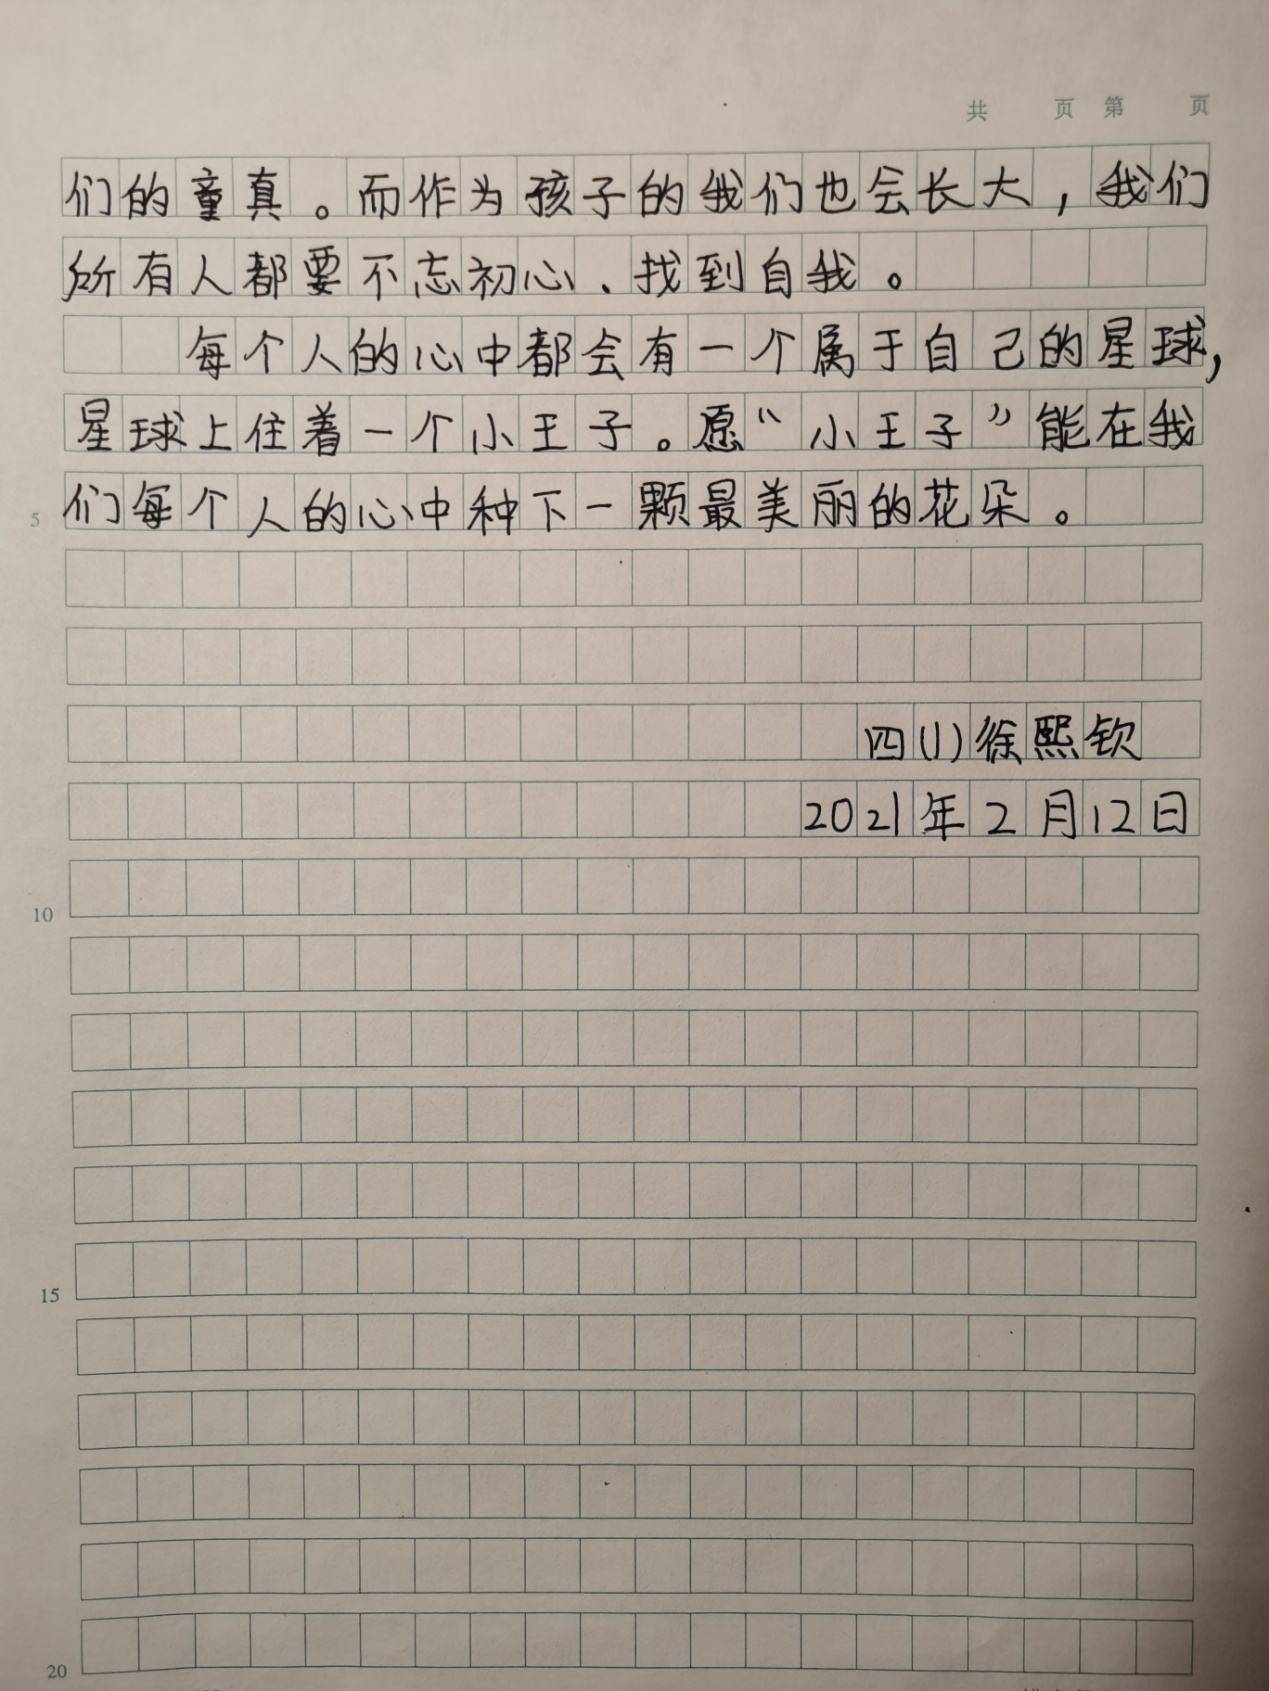 共 页 第 页
们的童真。而作为孩子的我们也会长大，我们
所有人都要不忘初心、找到自我。
每个人的心中都会有一个属于自己的星球，
星球上住着一个小王子。愿“小王子”能在我
5 们每个人的心中种下一颗最美丽的花朵。
四(1)徐熙钦
2021年2月12日
10
15
20